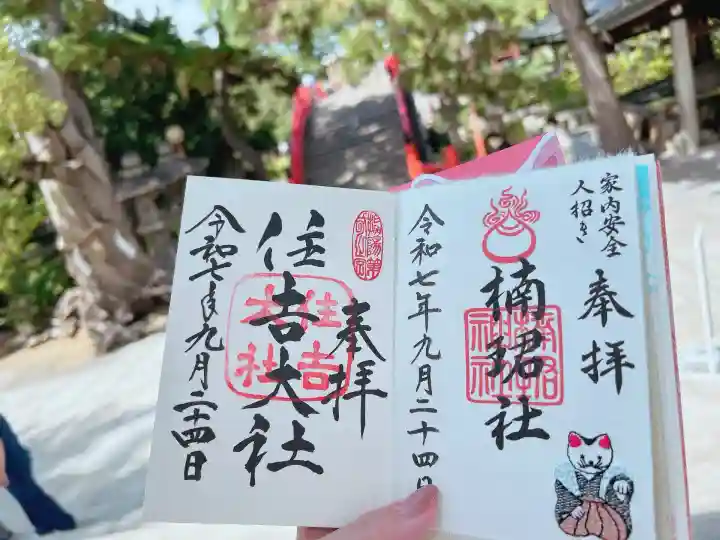 家内安全
人招き
奉拝
楠珺社
楠珺社
令和七年九月二十四日
奉拝
住吉大社
住吉大社
令和七年九月二十四日